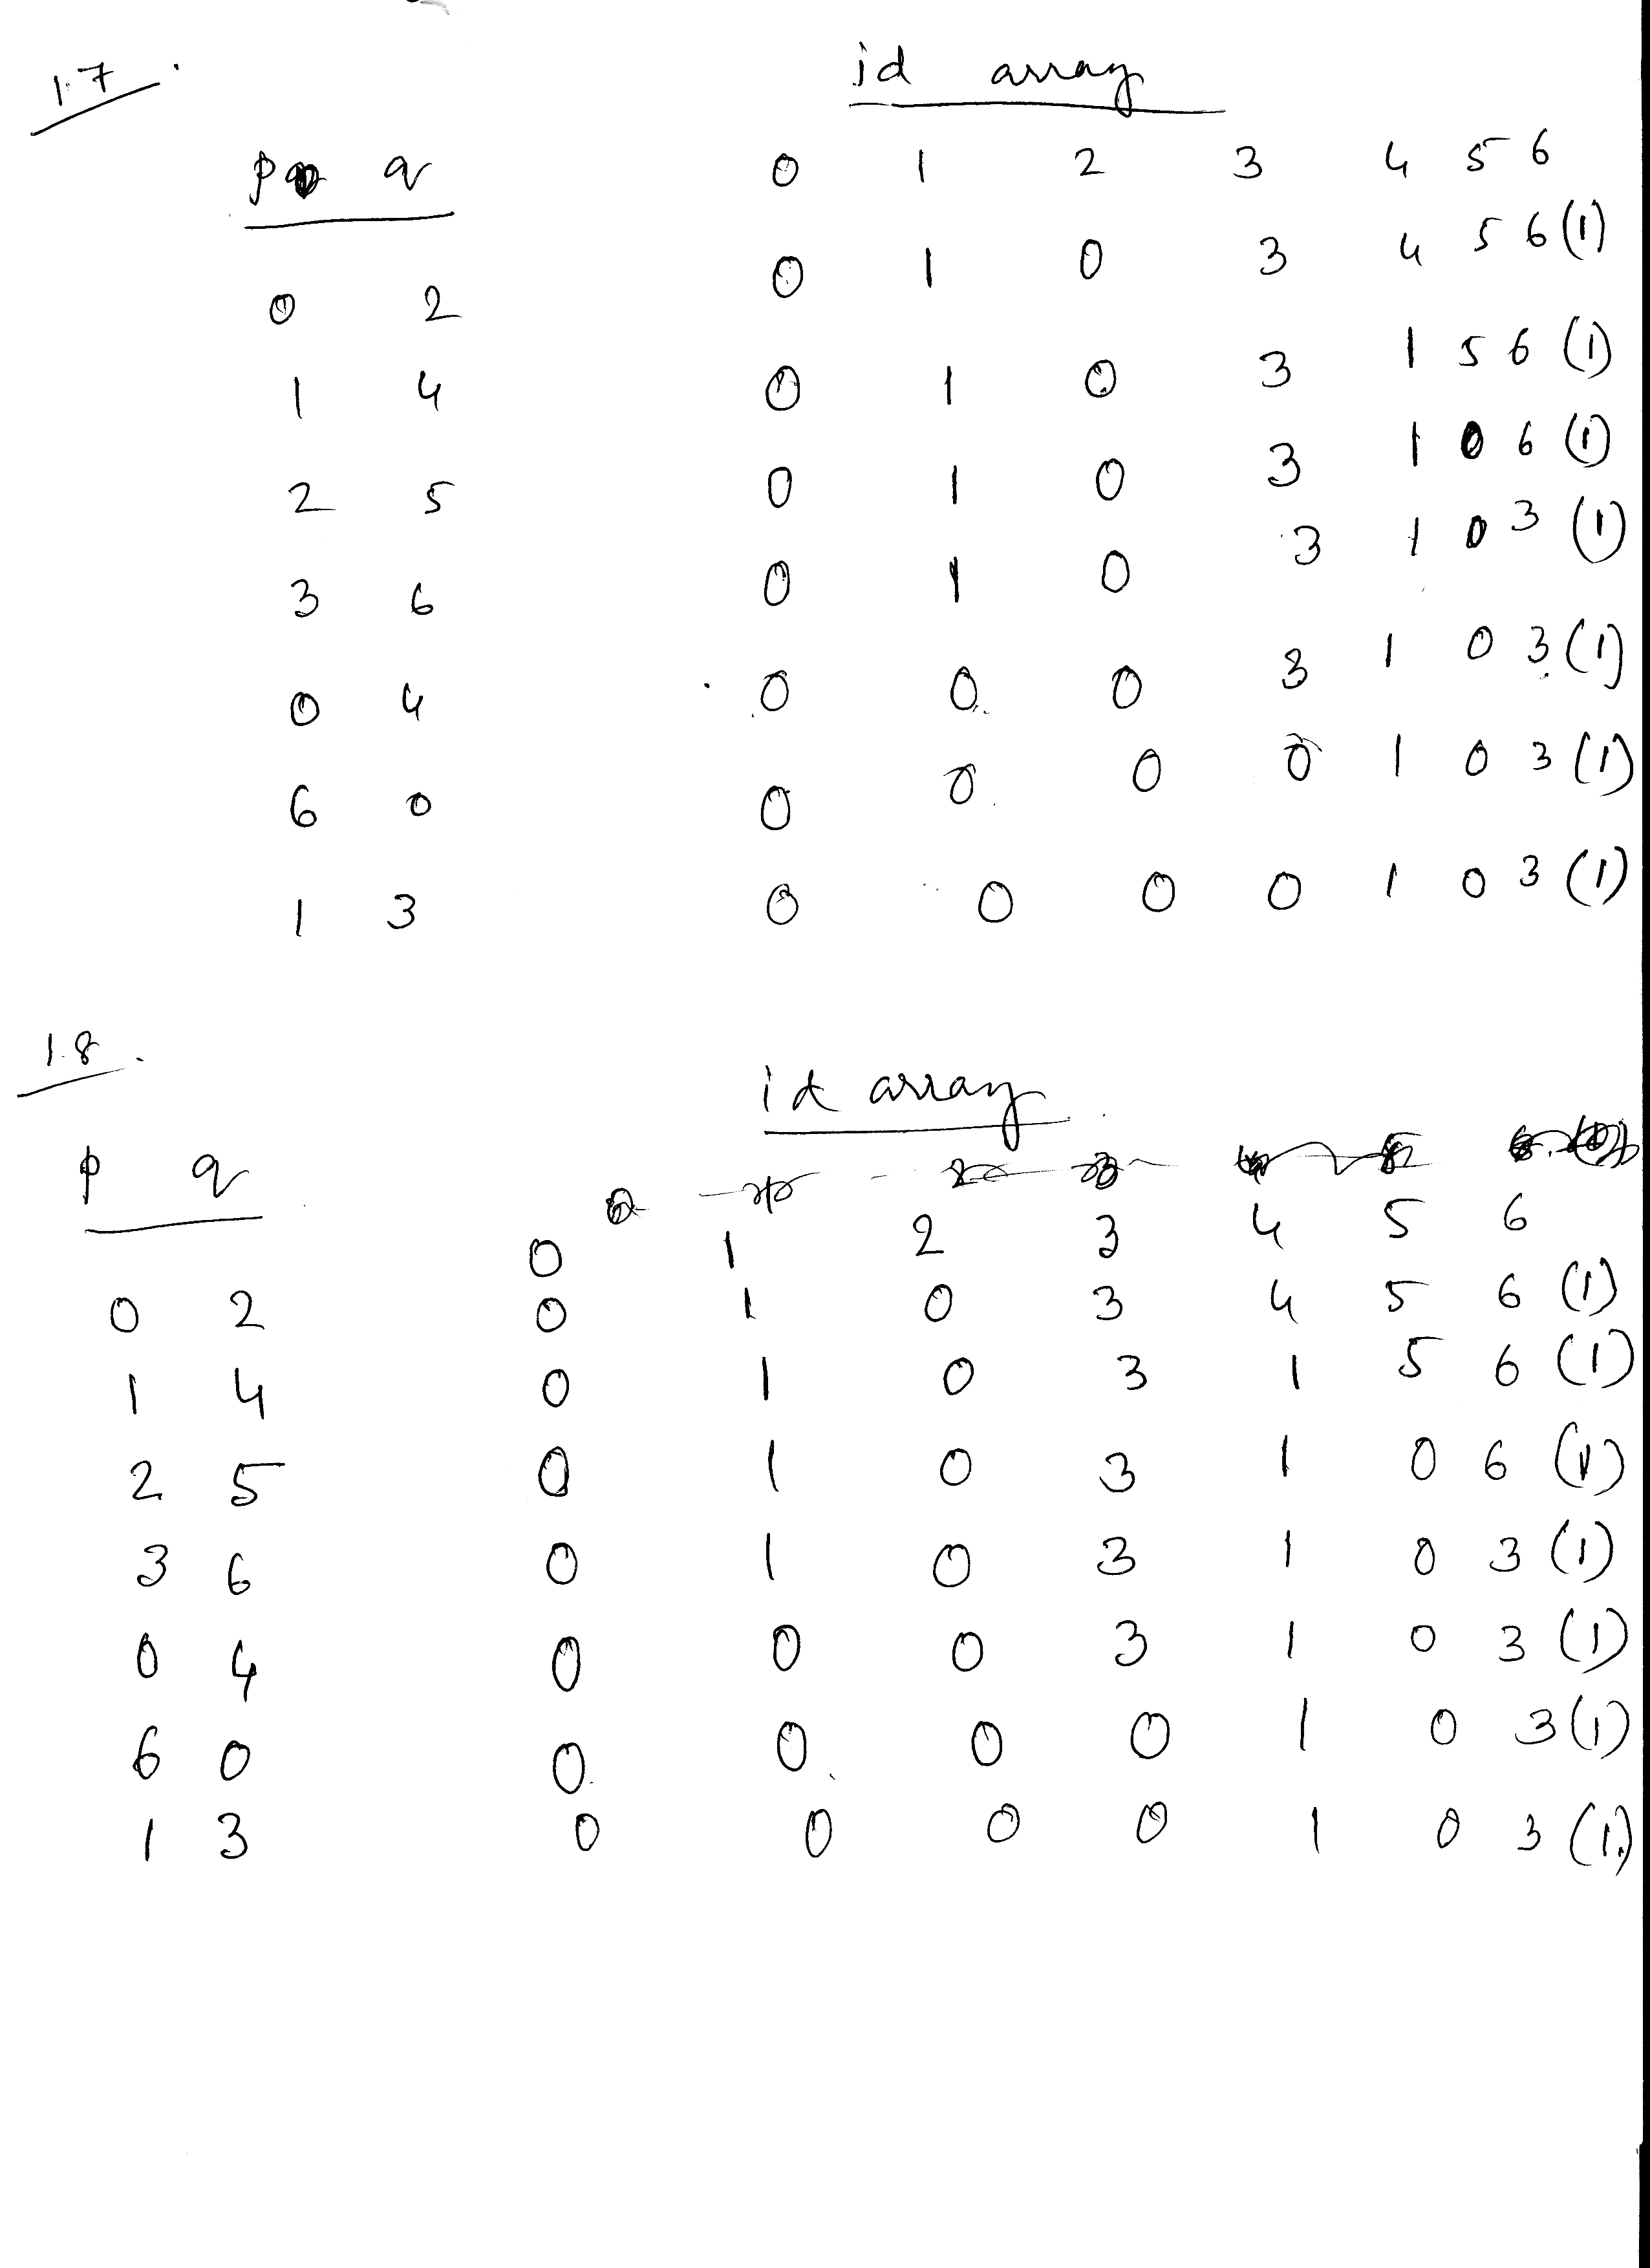 1.7.
id array
p q 0 1 2 3 4 5 6
0 2 0 1 0 3 4 5 6 (1)
1 4 0 1 0 3 1 5 6 (1)
2 5 0 1 0 3 1 0 6 (1)
3 6 0 1 0 3 1 0 3 (1)
0 4 0 0 0 3 1 0 3 (1)
6 0 0 0 0 0 1 0 3 (1)
1 3 0 0 0 0 1 0 3 (1)
1.8.
id array
p q
0 1 2 3 4 5 6
0 2 0 1 0 3 4 5 6 (1)
1 4 0 1 0 3 1 5 6 (1)
2 5 0 1 0 3 1 0 6 (1)
3 6 0 1 0 3 1 0 3 (1)
0 4 0 0 0 3 1 0 3 (1)
6 0 0 0 0 0 1 0 3 (1)
1 3 0 0 0 0 1 0 3 (1)